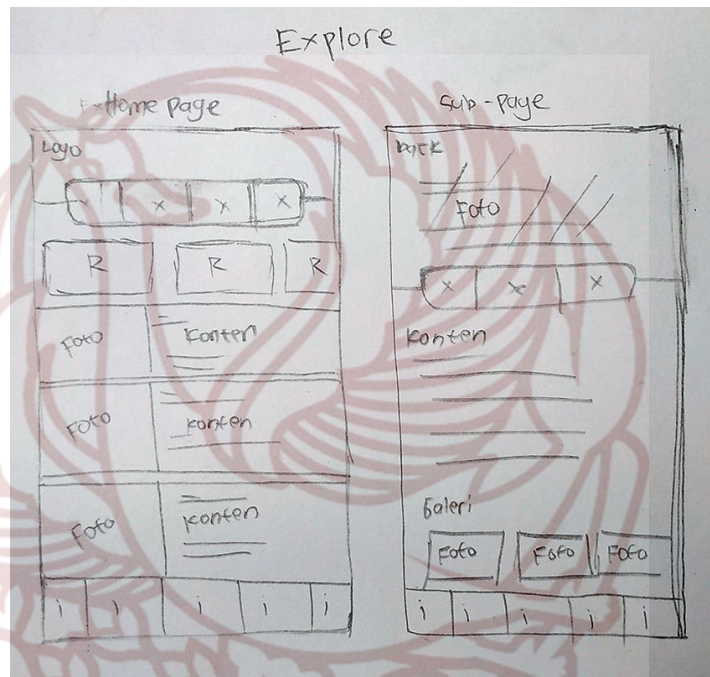 Explore
Home page
Logo
x x x x
R R R
Foto Konten
Foto Konten
Foto Konten
i i i i i
Sub-page
back
Foto
x x x
Konten
Galeri
Foto Foto Foto
i i i i i